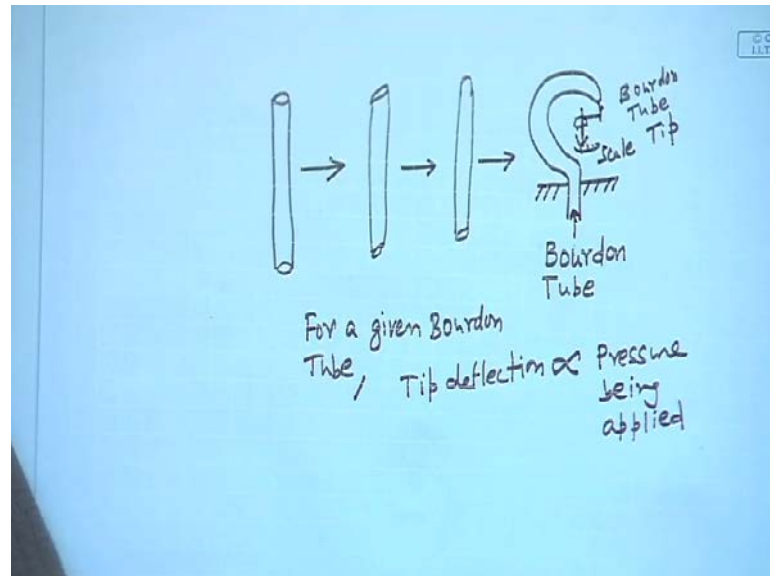 Bourdon
Tube
Tip
Scale
Bourdon
Tube
For a given Bourdon
Tube,
Tip deflection ∝ Pressure
being
applied